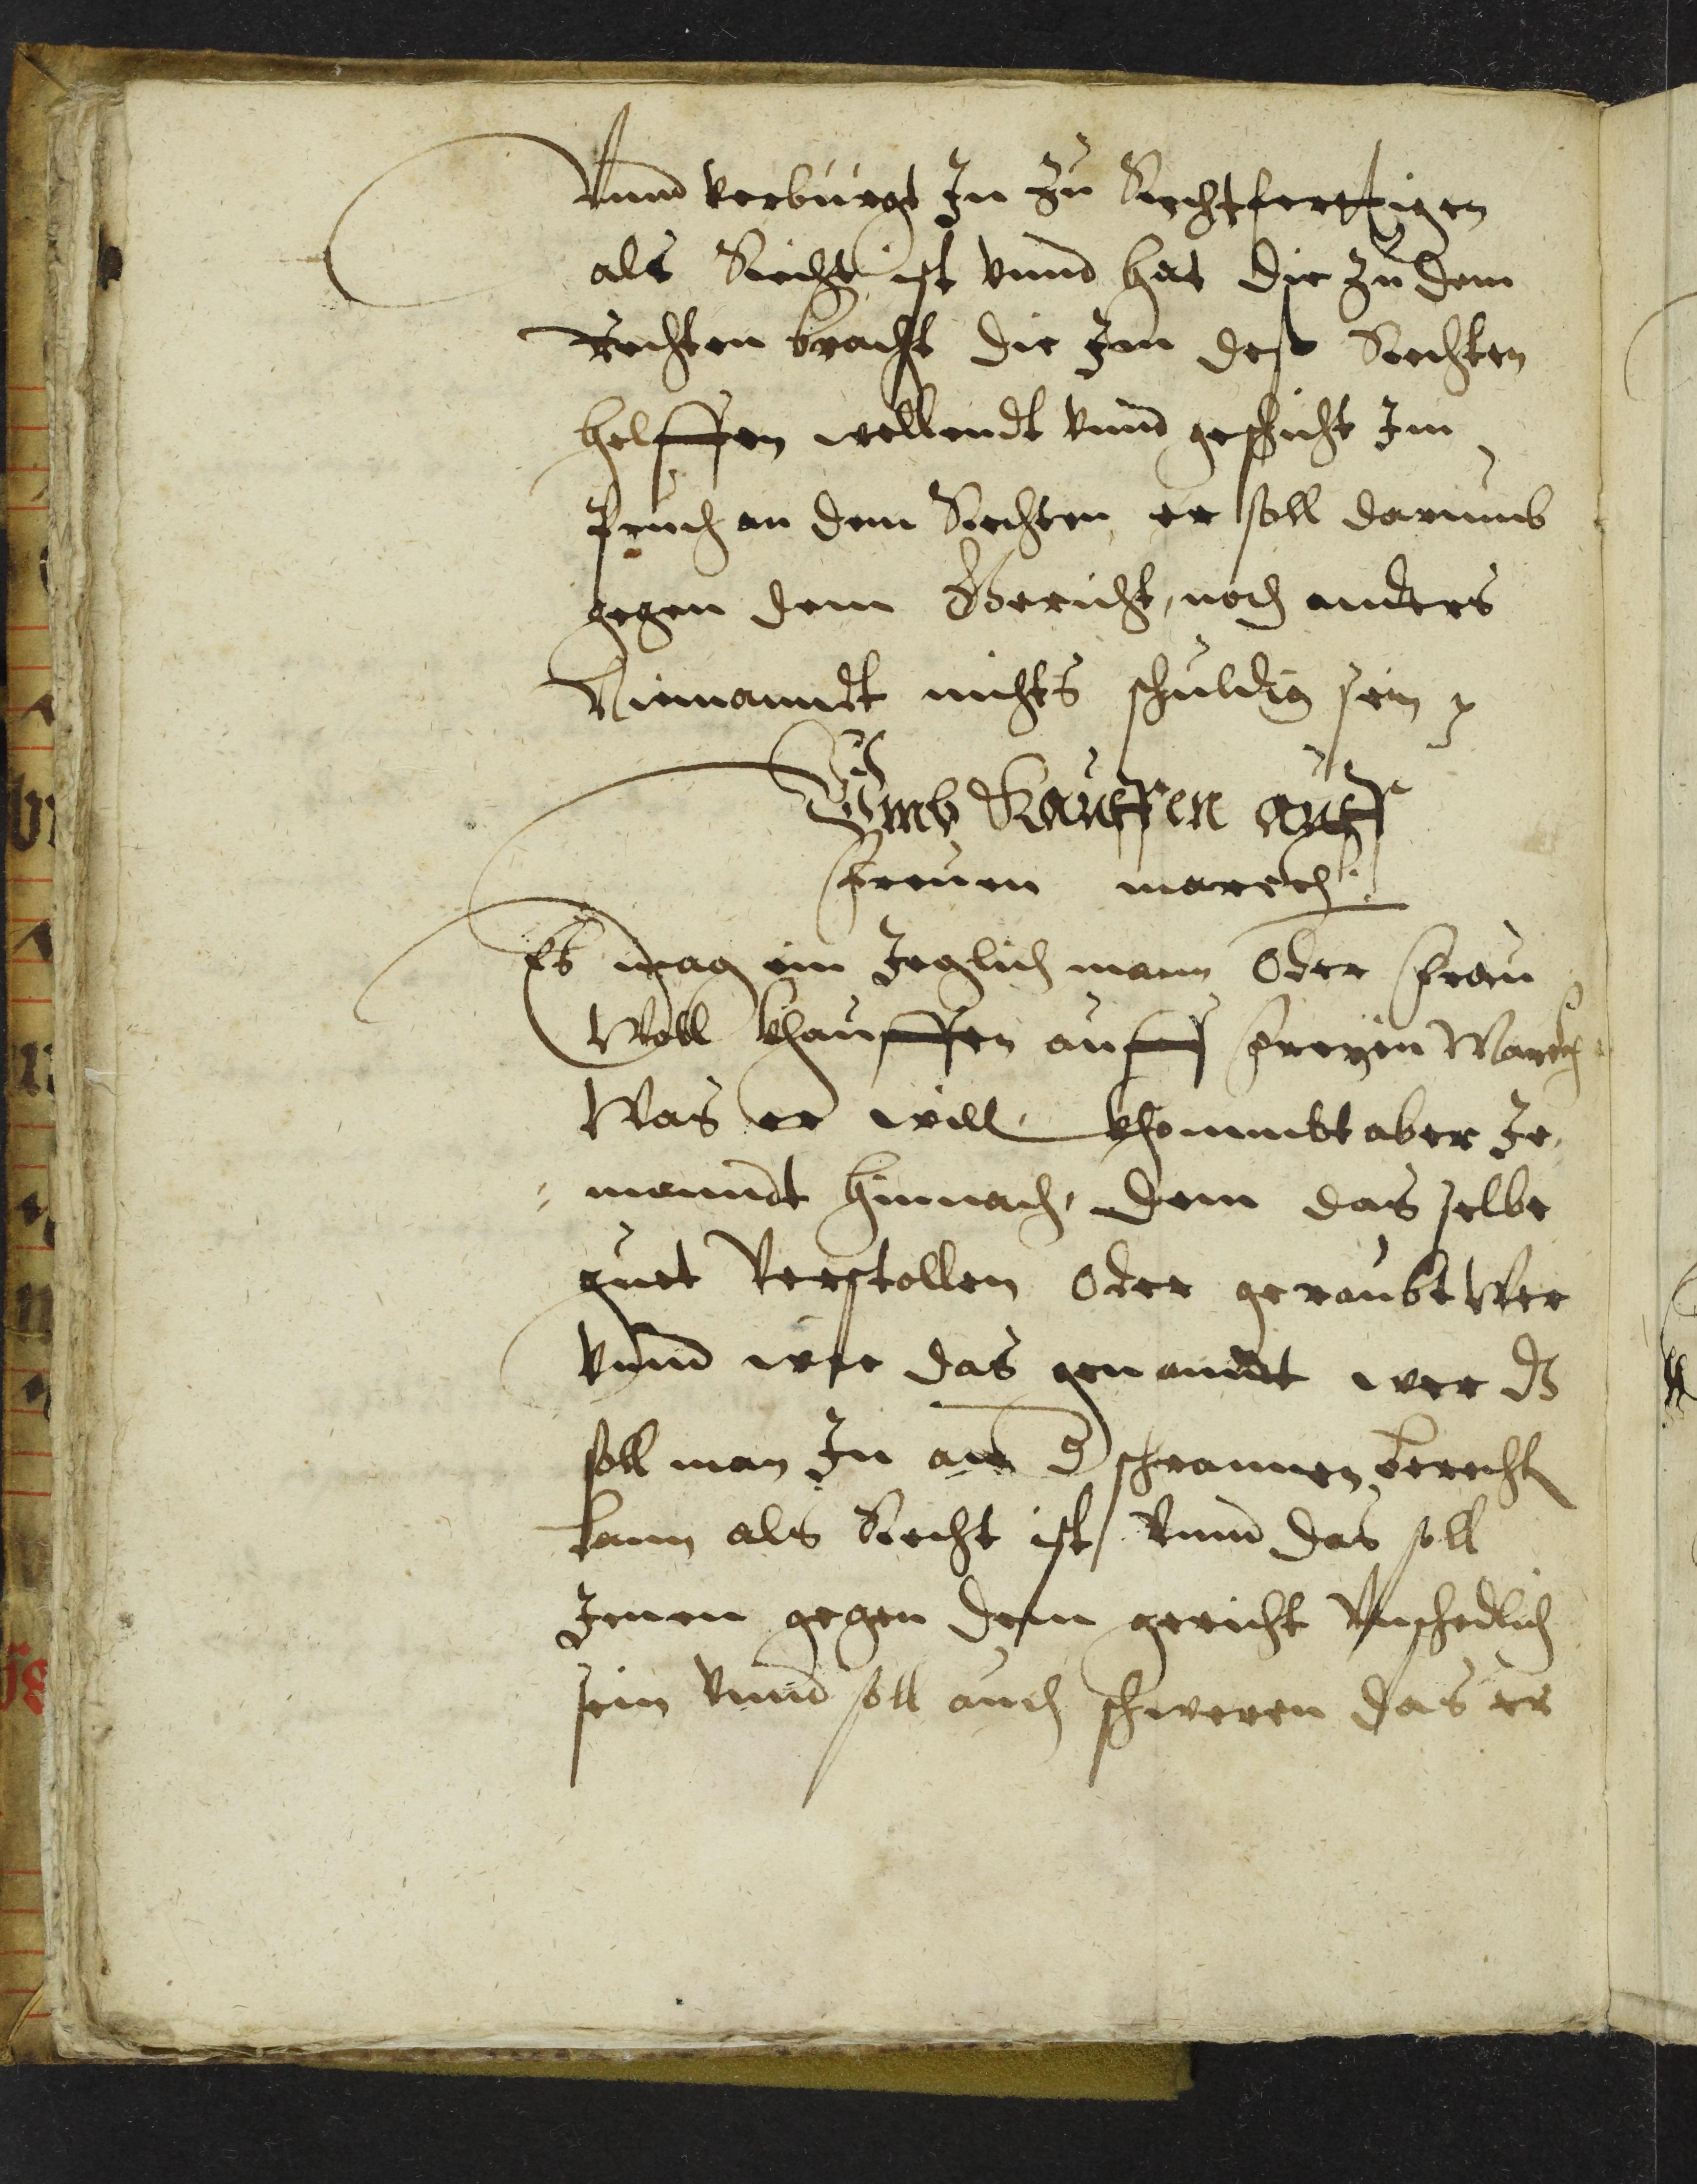 Vnnd verbürgt In Zu Rechtferttigen
als Recht ist vnnd hat die Zu dem
Rechten bracht die Im deß Rechten
helffen wellendt vnnd geschicht Im
pruch an dem Rechten er soll darumb
gegen dem Gericht, noch anders
Niemanndt nichts schuldig sein
Vmb Kauffen auff
freuen marckh
Es mag ein Jeglich mann Oder frau
Woll khauffen auff freyen Marckh
Was er will, khommbt aber Je„
„manndt hinnach, dem das selbe
guet Verstollen Oder geraubt Wer
vnnd wie das genanndt wer dz
soll man In an d schrannen berecht
bann als Recht ist, Vnnd das soll
Jenen gegen dem gericht Vnschedlich
sein vnnd soll auch schweren das er